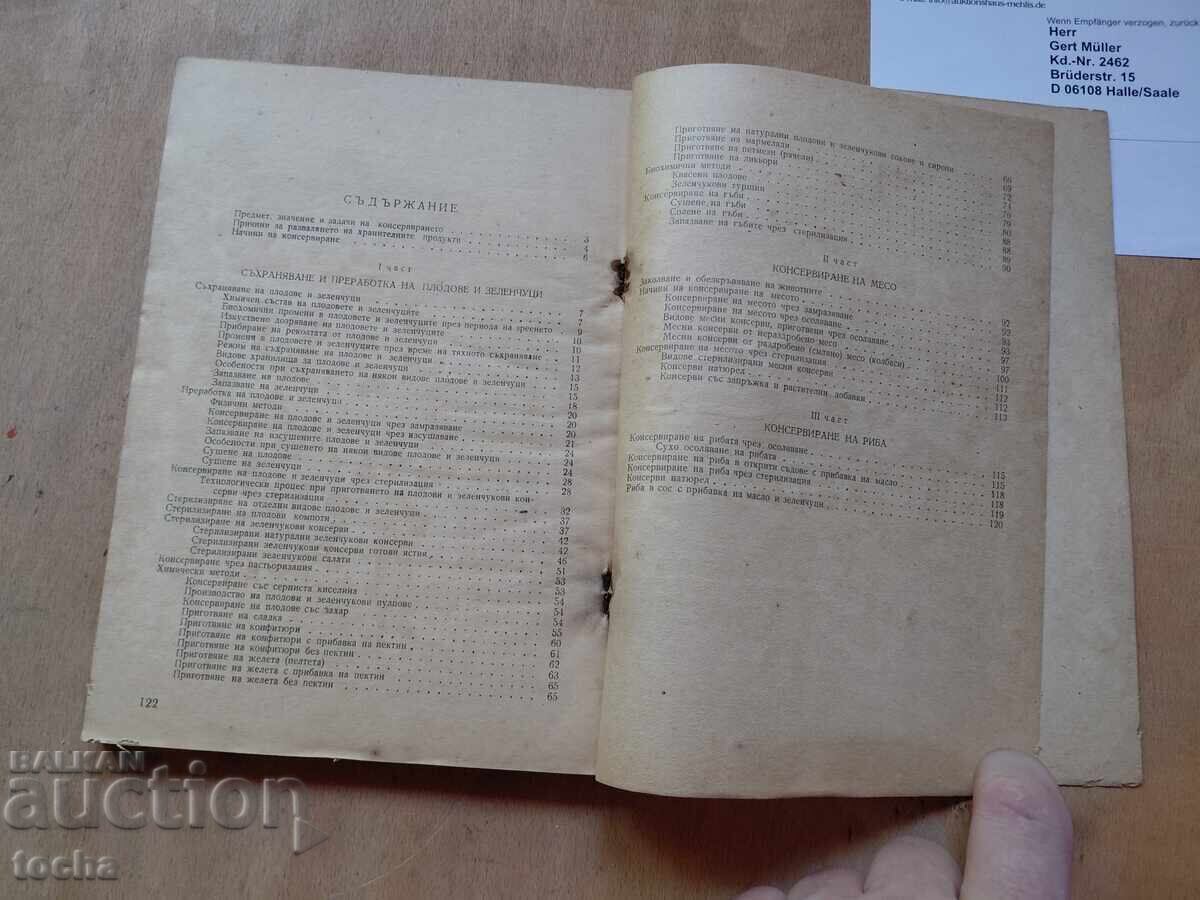 info@auktionshaus-mehlis.de
Wenn Empfänger verzogen, zurück
Herr
Gert Müller
Kd.-Nr. 2462
Brüderstr. 15
D 06108 Halle/Saale
СЪДЪРЖАНИЕ
Предмет, значение и задачи на консервирането 3
Причини за развалянето на хранителните продукти 4
Начини на консервиране 6
I част
СЪХРАНЯВАНЕ И ПРЕРАБОТКА НА ПЛОДОВЕ И ЗЕЛЕНЧУЦИ
Съхраняване на плодове и зеленчуци 7
Химичен състав на плодовете и зеленчуците 7
Биохимични промени в плодовете и зеленчуците през периода на зреенето 9
Изкуствено дозряване на плодовете и зеленчуците 10
Прибиране на реколтата от плодове и зеленчуци 10
Променя в плодовете и зеленчуците през време на тяхното съхраняване 11
Режим на съхраняване на плодове и зеленчуци 12
Видове хранилища за плодове и зеленчуци 13
Особености при съхраняването на някои видове плодове и зеленчуци 15
Запазване на плодове 15
Запазване на зеленчуци 18
Преработка на плодове и зеленчуци 20
Физични методи 20
Консервиране на плодове и зеленчуци чрез замразяване 20
Консервиране на плодове и зеленчуци чрез изсушаване 21
Запазване на изсушените плодове и зеленчуци 24
Особености при сушенето на някои видове плодове и зеленчуци 24
Сушене на плодове 24
Сушене на зеленчуци 28
Консервиране на плодове и зеленчуци чрез стерилизация 28
Технологически процес при приготвянето на плодови и зеленчукови кон-
серви чрез стерилизация 32
Стерилизиране на отделни видове плодове и зеленчуци 37
Стерилизиране на плодови компоти 37
Стерилизиране на зеленчукови консерви 42
Стерилизирани натурални зеленчукови консерви 42
Стерилизирани зеленчукови консерви готови ястия 46
Стерилизирани зеленчукови салати 51
Консервиране чрез пастьоризация 53
Химически методи 53
Консервиране със серниста киселина 54
Производство на плодови и зеленчукови пулпове 54
Консервиране на плодове със захар 54
Приготвяне на сладка 55
Приготвяне на конфитюри 60
Приготвяне на конфитюри с прибавка на пектин 61
Приготвяне на конфитюри без пектин 62
Приготвяне на желета (пелтета) 63
Приготвяне на желета с прибавка на пектин 65
Приготвяне на желета без пектин 65
122
Приготвяне на натурални плодови и зеленчукови сокове и сиропи 66
Приготвяне на мармелади 69
Приготвяне на петмези (рачели) 72
Приготвяне на ликьори 74
Биохимични методи 79
Квасени плодове 79
Зеленчукови туршии 80
Консервиране на гъби 88
Сушене на гъби 88
Солене на гъби 89
Запазване на гъбите чрез стерилизация 90
II част
КОНСЕРВИРАНЕ НА МЕСО
Заколване и обезкръвяване на животните 92
Начини на консервиране на месото 92
Консервиране на месото чрез замразяване 93
Консервиране на месото чрез осоляване 93
Видове месни консерви, приготвени чрез осоляване 94
Месни консерви от нераздробено месо 93
Месни консерви от раздробено (смляно) месо (колбаси) 97
Консервиране на месото чрез стерилизация 100
Видове стерилизирани месни консерви 111
Консерви натюрел 112
Консерви със запръжка и растителни добавки 112
113
III част
КОНСЕРВИРАНЕ НА РИБА
Консервиране на рибата чрез осоляване 115
Сухо осоляване на рибата 115
Консервиране на риба в открити съдове с прибавка на масло 118
Консервиране на риба чрез стерилизация 118
Консерви натюрел 119
Риба в сос с прибавка на масло и зеленчуци 120
BALKAN
auction
tocha